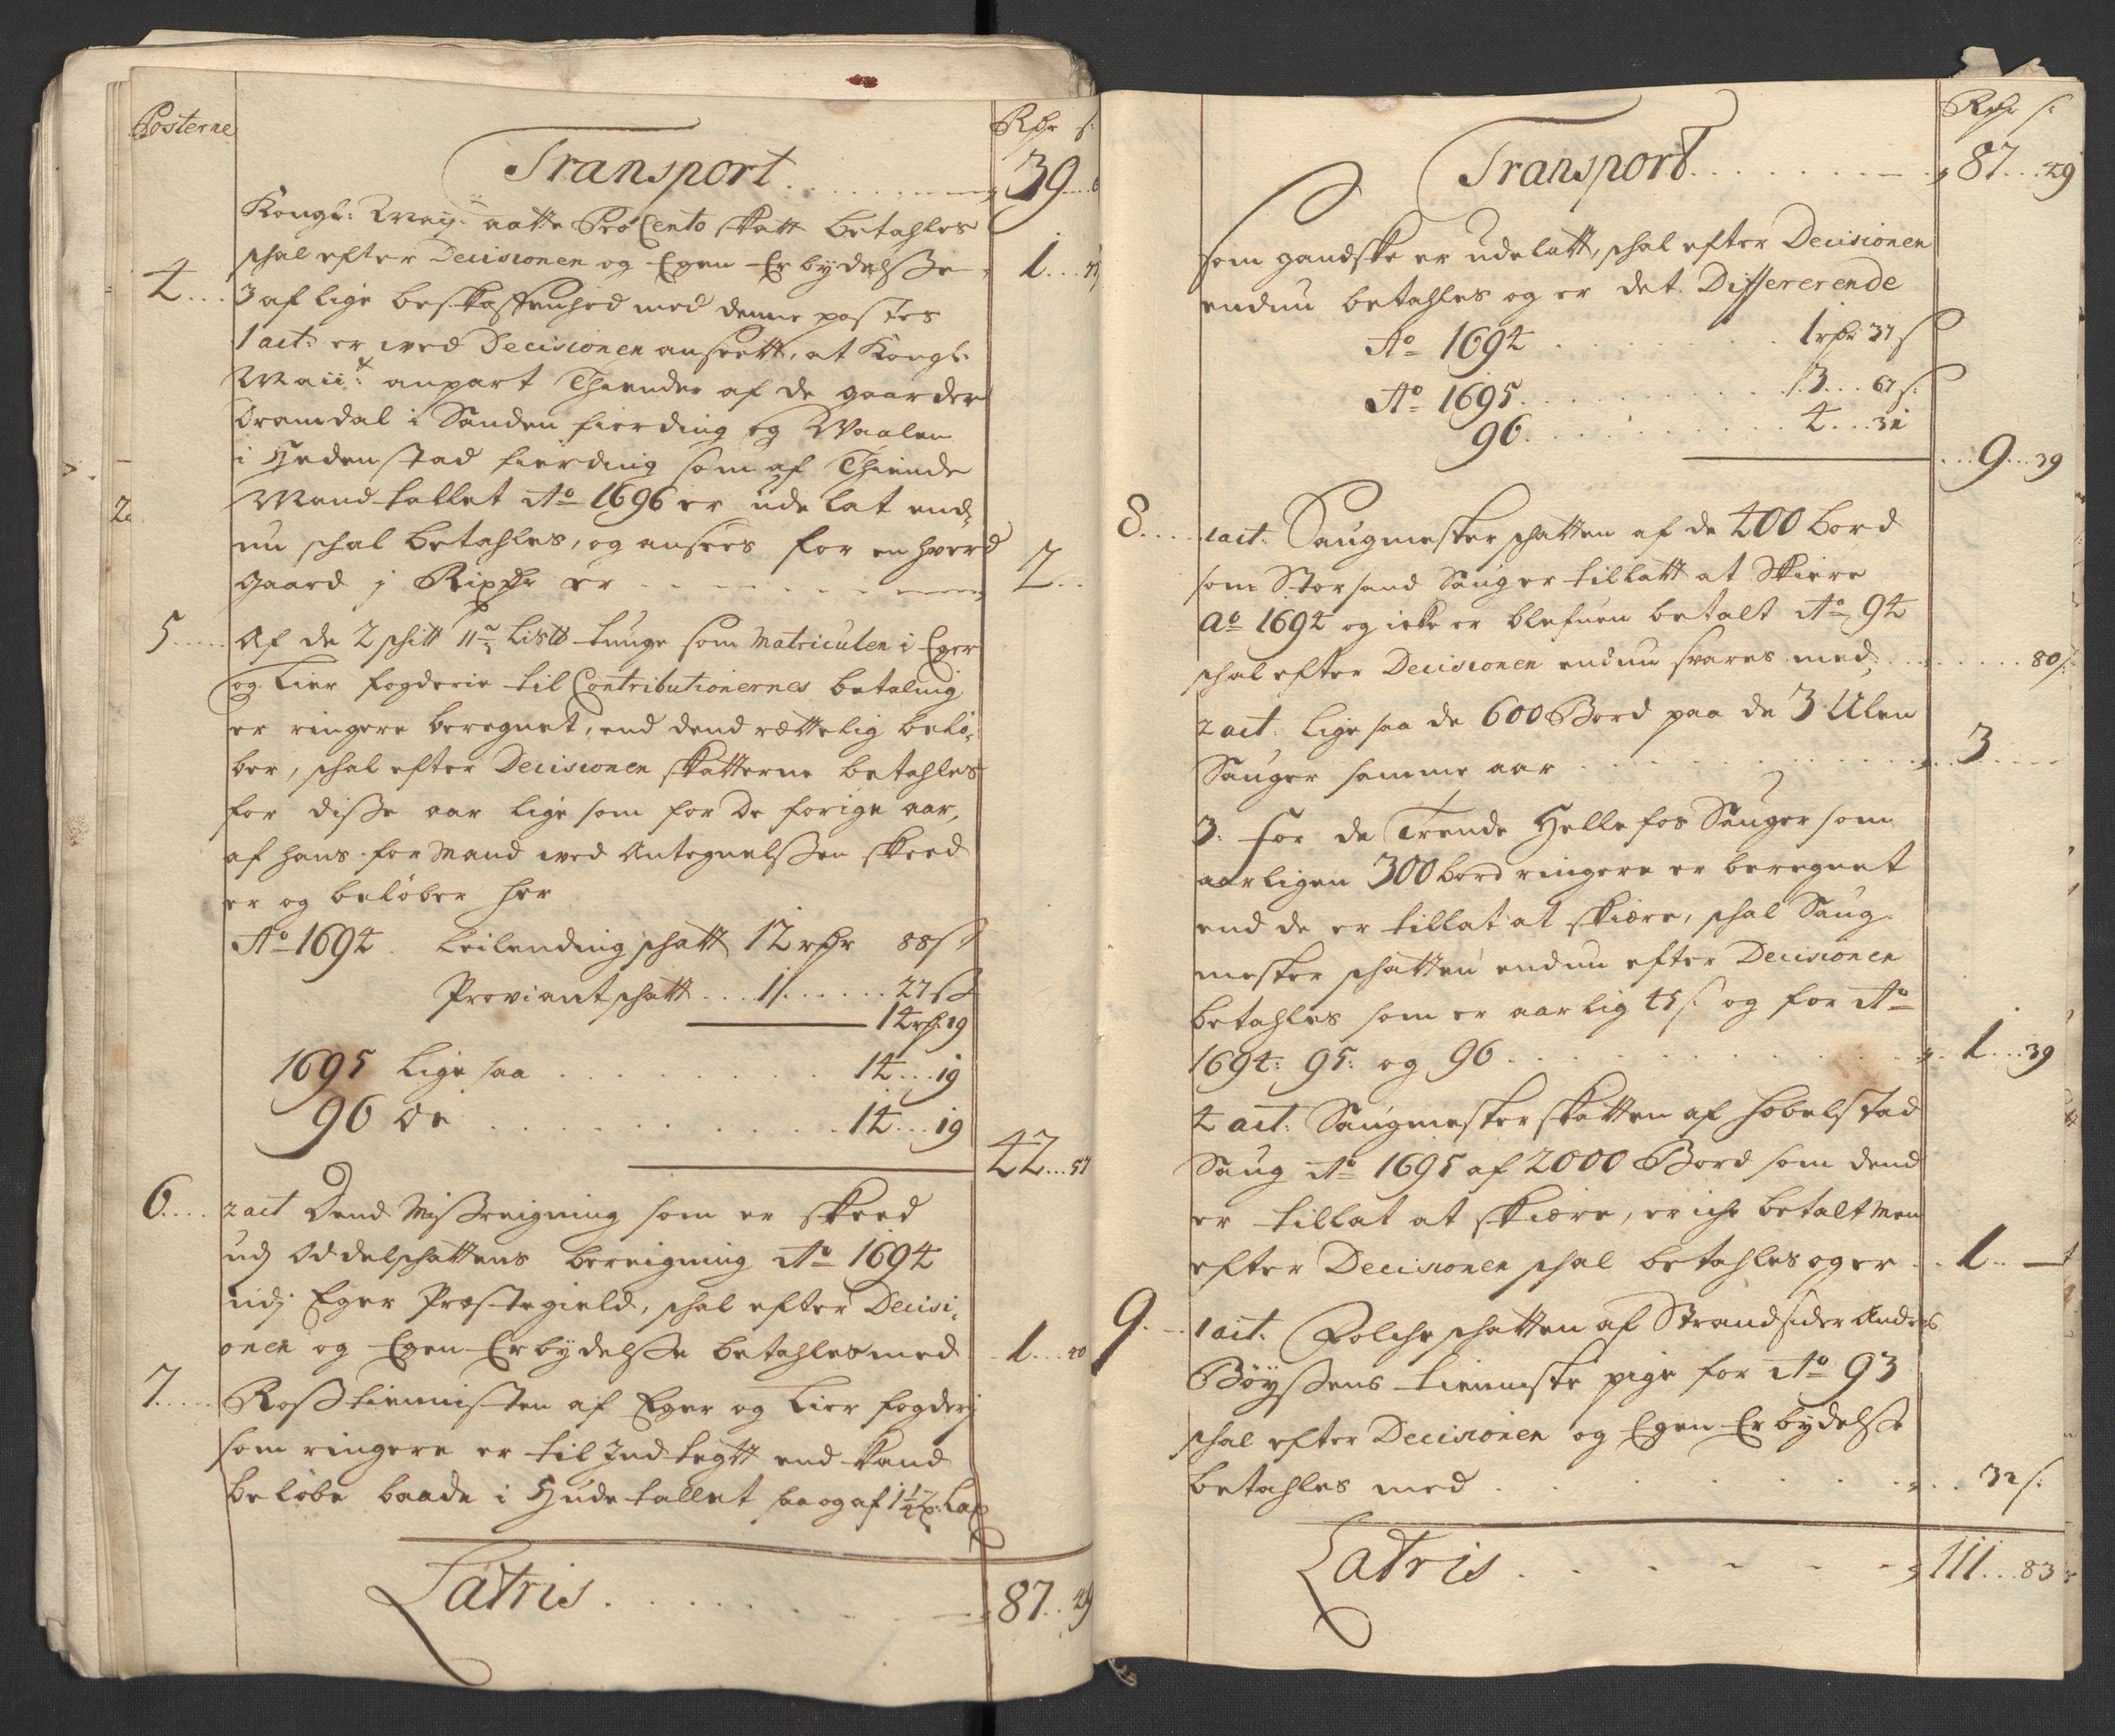 Posterne
Rdr s:
Transport 39
Kongl: May: aatte Pro Cento skatt betahles
schal efter Decisionen og Egen Erbydelsse 1
4 3 af lige beskaffenhed med denne postes
1 act: er wed Decisionen anseett, at Kongl:
Maii:ts anpart Thiender af de gaarder
Dramdal i Sanden fierding og Waalen
i Hedenstad fierding som af Thiende
Mandtallet Ao 1696 er udelat end¬
nu schal betahles, og ansees for en hverd
gaard j Rixdr er 2
5 Af de 2 schitt 11 Listt tunge som Matriculen i Eger
og Lier fogderie til Contributionernes betaling
er ringere beregnet, end dend rættelig belø¬
ber, schal efter Decisionen skatterne betahles
for disse aar lige som for de forige aar,
af hans formand wed Antegnelssen skeed
er og beløber her
Ao 1694. Leilending schatt 12 rdr 88 s
Proviant schatt 1 27 s
14 rdr 19
1695 lige saa 14 19
96 do 14 19
42 57
6 2 act Dend Missreigning som er skeed
udj Oddelschattens bereigning Ao 1694
udj Eger Præstegield, schal efter Decisi¬
onen og Egen Erbydelsse betahles med 1 20
7 Rosstiennisten af Eger og Lier fogderj
som ringere er til Indtegtt end kand
beløbe baade i Hudetallet saa og af 1 1/2 Lax
Latris 87 29
Rdr s:
Transport 87 29
som gandske er udelatt, schal efter Decisionen
endnu betahles og er det Differerende
Ao 1694 1 rdr 37 s
Ao 1695 3 67 s:
96 4 31
9 39
8 1 act: Saugmester schatten af de 400 bord
som Storsand Saug er tillatt at Skiere
Ao 1694 og icke er blefuen betalt Ao 94
schal efter Decisionen endnu svares med 80 s:
2 act: Lige saa de 600 Bord paa de 3 Ulen
Sauger samme aar 3
3: For de Trende Hellefos Sauger som
aarligen 300 bord ringere er beregnet
end de er tillat at skiære, schal Saug¬
mester schatten endnu efter Decisionen
betahles som er aarlig 45 s: og for Ao
1694: 95: og 96 1 39
4 act: Saugmester skatten af Hobelstad
Saug Ao 1695 af 2000 Bord som dend
er tillat at skiære, er iche betalt Men
efter Decisionen schal betahles og er 1
9 1 act. Folche schatten af Strandsider Anders
Bøyssens tienniste pige for Ao 93
schal efter Decisionen og Egen Erbydelsse
betahles med 32 s:
Latris 111 83